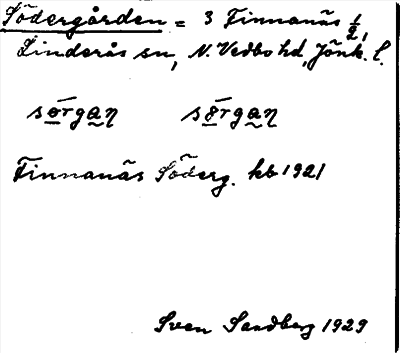 Södergården = 3 Finnanäs 1/2,
Linderås sn, N. Vedbo hd, Jönk. l.
sørgaṇ sørgaṇ
Finnanäs Söderg. kb 1921
Sven Sandberg 1929